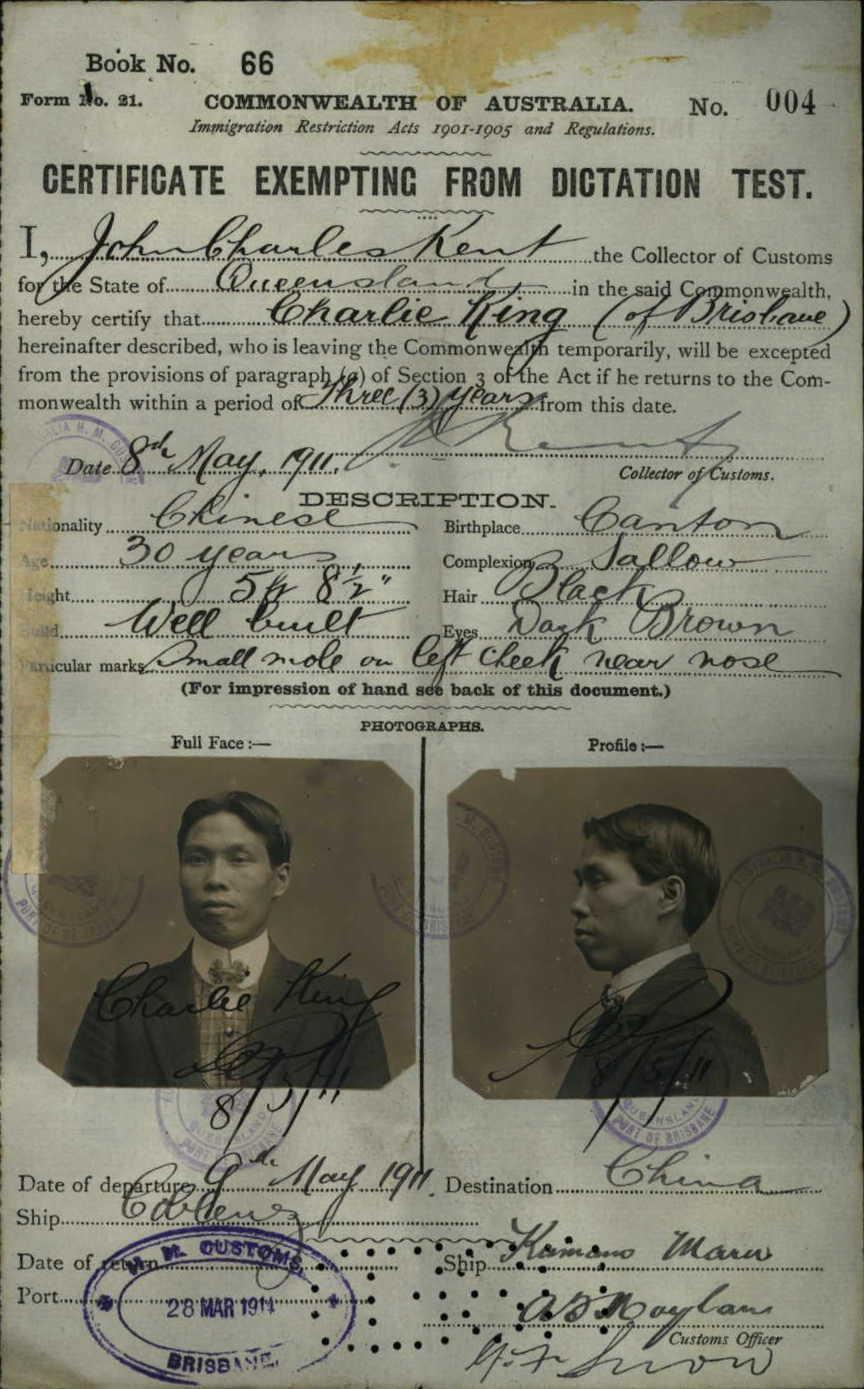 Book No. 66
Form No. 21. COMMONWEALTH OF AUSTRALIA. No. 004
Immigration Restriction Acts 1901-1905 and Regulations.
CERTIFICATE EXEMPTING FROM DICTATION TEST.
I, John Charles Kent the Collector of Customs
for the State of Queensland in the said Commonwealth,
hereby certify that Charlie King (of Brisbane)
hereinafter described, who is leaving the Commonwealth temporarily, will be excepted
from the provisions of paragraph (a) of Section 3 of the Act if he returns to the Com-
monwealth within a period of Three (3) years from this date.
Date 8th May, 1911. J. C. Kent
Collector of Customs.
DESCRIPTION.
Nationality Chinese Birthplace Canton
Age 30 years Complexion Sallow
Height 5 ft 8½" Hair Black
Build Well built Eyes Dark Brown
Particular marks Small mole on left cheek near nose
(For impression of hand see back of this document.)
PHOTOGRAPHS.
Full Face:— Profile:—
Charlie King
8/5/11 8/5/11
QUEENSLAND
PORT OF BRISBANE
Date of departure 9th May 1911. Destination China
Ship Coblenz
Date of return Ship Kumano Maru
Port
H. M. CUSTOMS
28 MAR 1914
BRISBANE.
Customs Officer